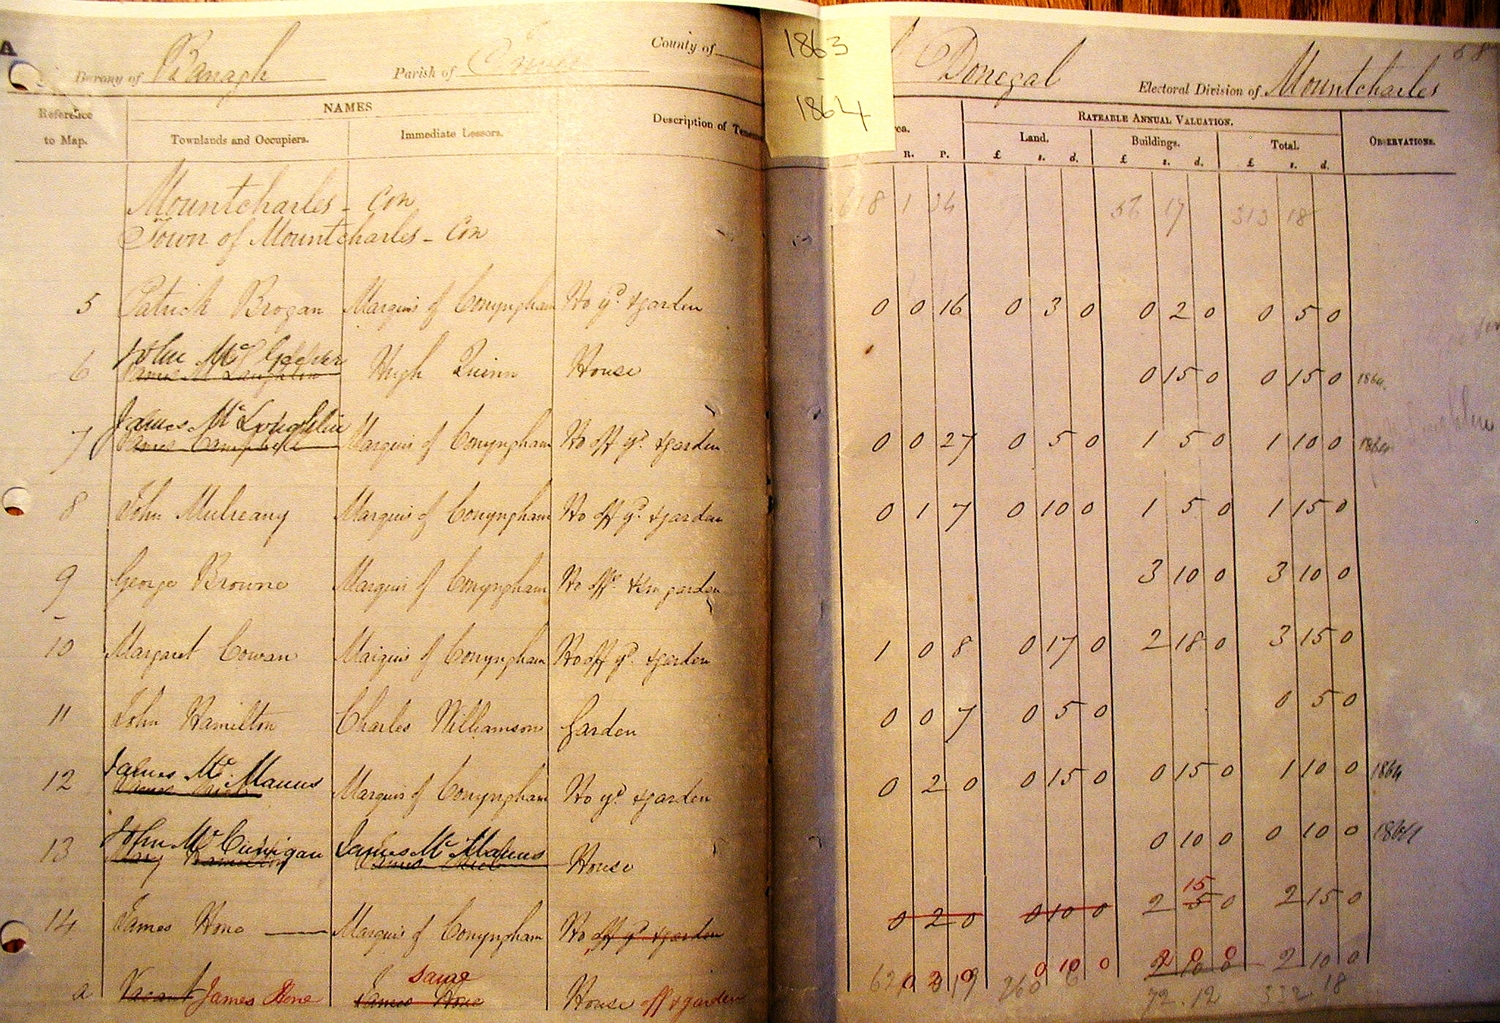 A
Barony of Banagh Parish of County of Donegal Electoral Division of Mountcharles
1863 - 1864
Reference to Map.
NAMES
Townlands and Occupiers. Immediate Lessors.
Description of
RATEABLE ANNUAL VALUATION.
R. P. Land. £ s. d. Buildings. £ s. d. Total. £ s. d.
OBSERVATIONS.
Mountcharles - Con 618 1 34 56 17 313 18
Town of Mountcharles - Con
5 Patrick Brogan Marquis of Conyngham Ho yd & garden 0 0 16 0 3 0 0 2 0 0 5 0
6 John Mc James McLaughlin Hugh Quinn House 0 15 0 0 15 0 1864
7 James McLoughlin James Campbell Marquis of Conyngham Ho off yd & garden 0 0 27 0 5 0 1 5 0 1 10 0 1864
8 John Mulreany Marquis of Conyngham Ho off yd & garden 0 1 7 0 10 0 1 5 0 1 15 0
9 George Browne Marquis of Conyngham Ho offs & sm garden 3 10 0 3 10 0
10 Margaret Cowan Marquis of Conyngham Ho off yd & garden 1 0 8 0 17 0 2 18 0 3 15 0
11 John Hamilton Charles Williamson Garden 0 0 7 0 5 0 0 5 0
12 James Mc.Manus Marquis of Conyngham Ho yd & garden 0 2 0 0 15 0 0 15 0 1 10 0 1864
13 John Mc Cunnigan James Mc Manus House 0 10 0 0 10 0 1864
14 James Hone Marquis of Conyngham Ho off yd & garden 0 2 0 0 10 0 2 15 5 0 2 15 0
a Vacant James Hone Same James Hone House off & garden 0 2 0 0 10 0 2 0 0 2 10 0 2 10 0
72.12 332 18